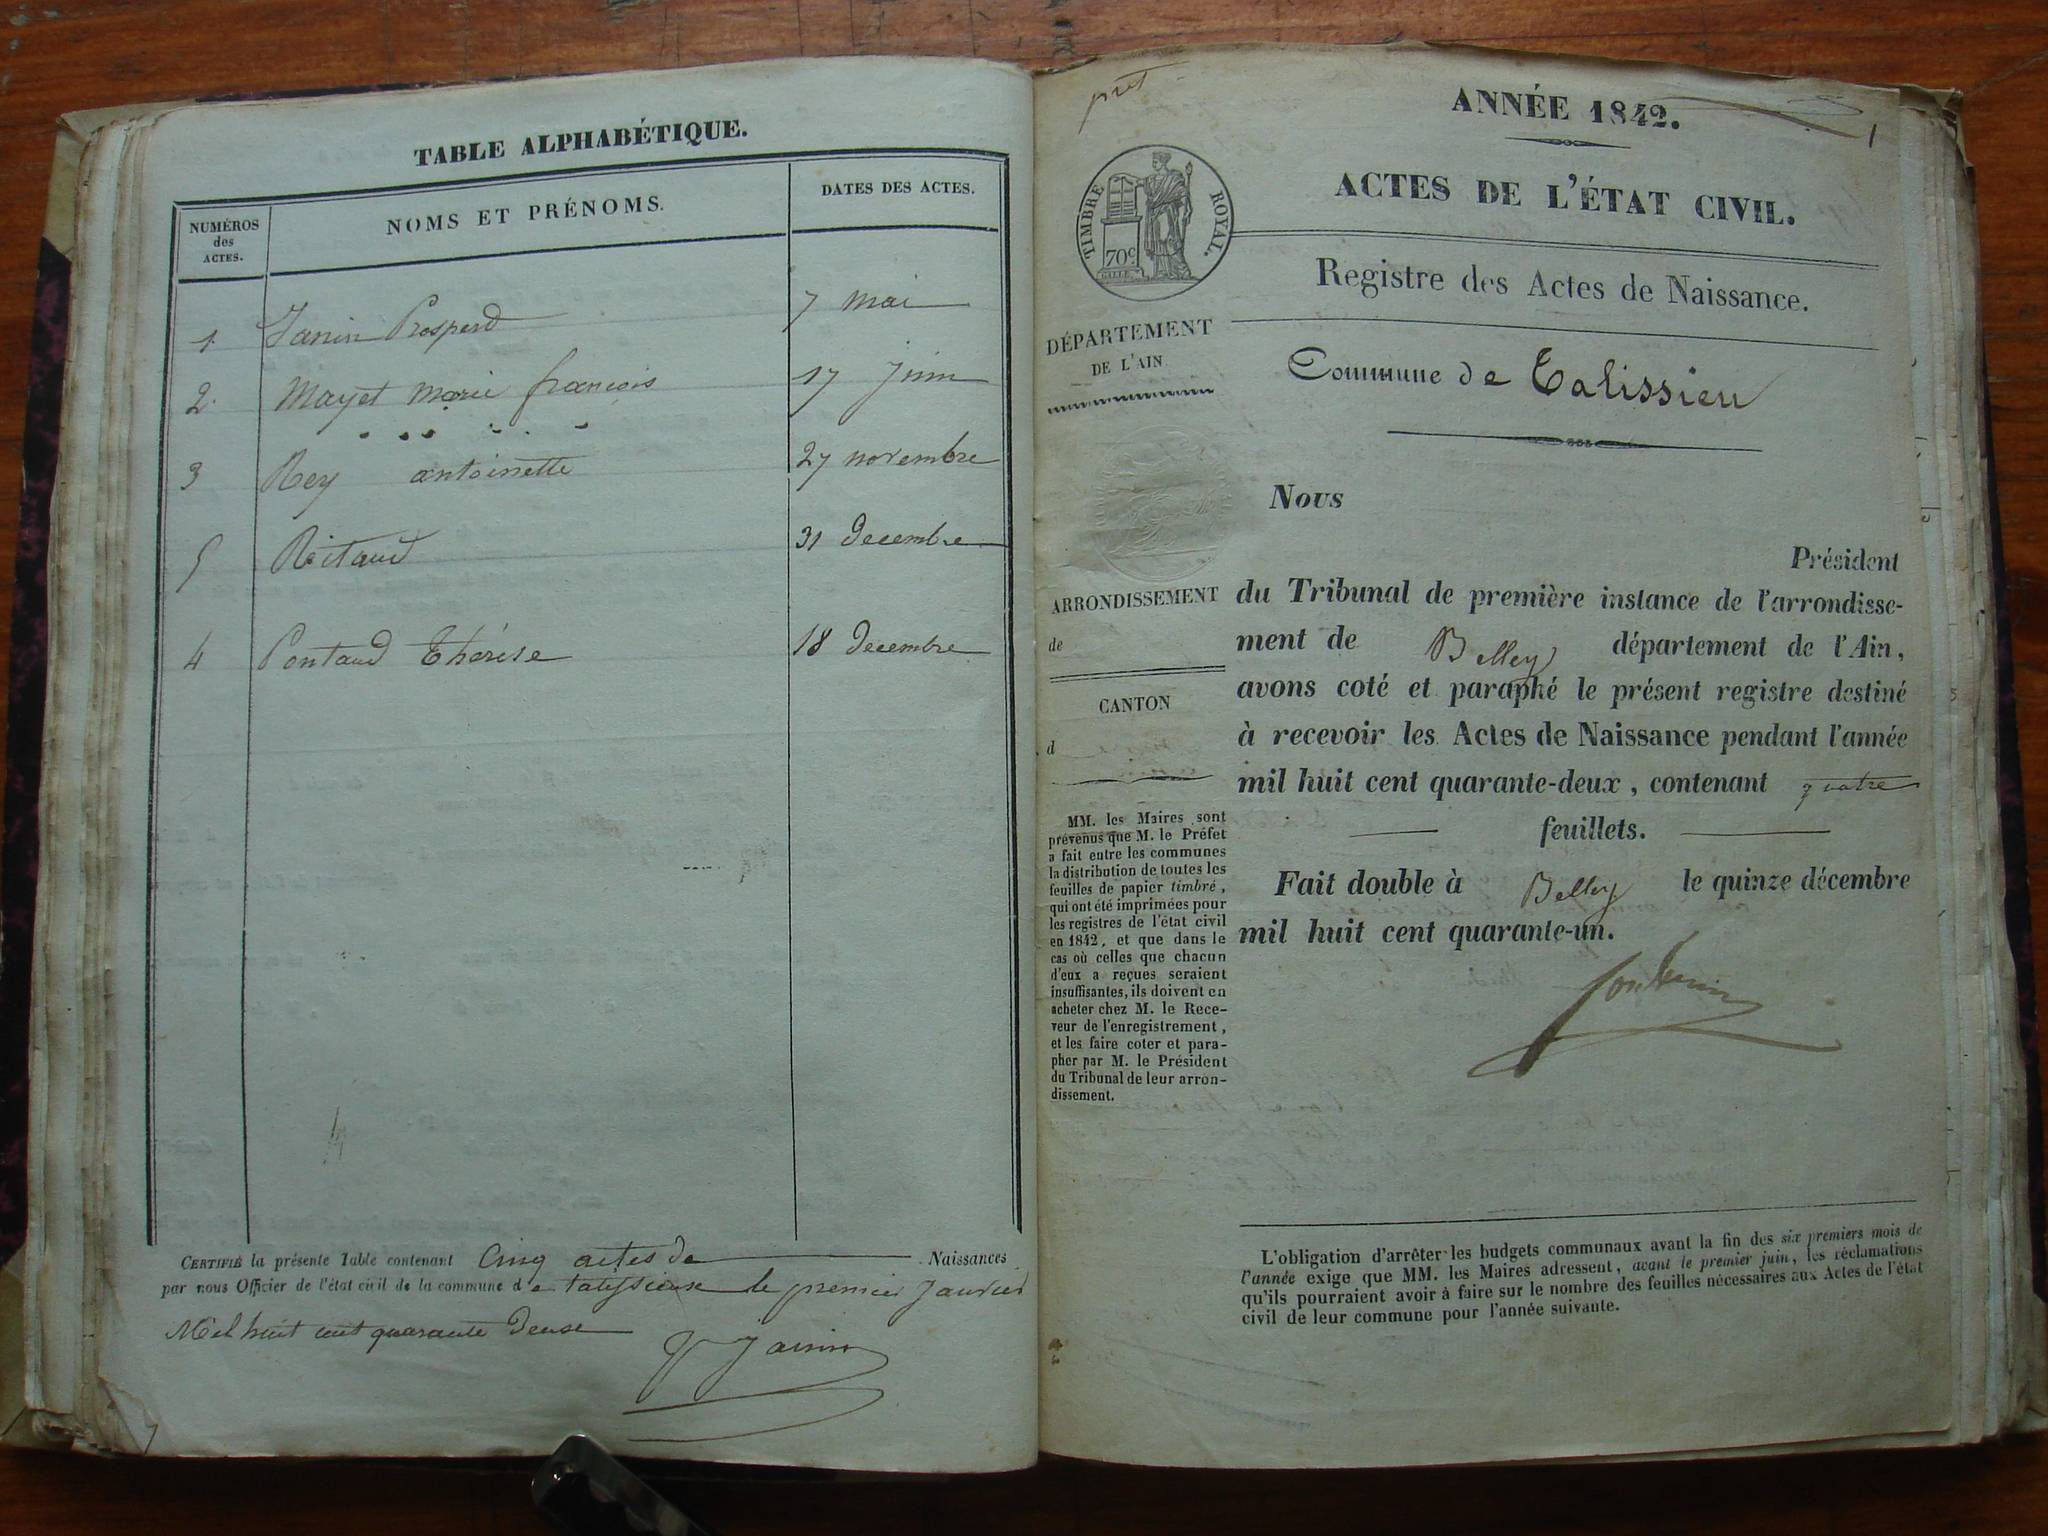 TABLE ALPHABÉTIQUE.
NUMÉROS des ACTES.
NOMS ET PRÉNOMS.
DATES DES ACTES.
1 Janin Prosperd 7 mai
2. Mayet marie françois 17 juin
3 Rey antoinette 27 novembre
5 Ritaud 31 decembre
4 Pontaud Thérèse 18 decembre
CERTIFIÉ la présente Table contenant Cinq actes de Naissances
par nous Officier de l'état civil de la commune de talissieux le premier Janvier
Mil huit cent quarante deux
Janin
pret
ANNÉE 1842.
1
ACTES DE L'ÉTAT CIVIL.
TIMBRE ROYAL.
70c
Registre des Actes de Naissance.
DÉPARTEMENT
DE L'AIN.
Commune de Talissieu
Nous
Président
ARRONDISSEMENT
de
CANTON
d
du Tribunal de première instance de l'arrondisse-
ment de Belley département de l'Ain,
avons coté et paraphé le présent registre destiné
à recevoir les Actes de Naissance pendant l'année
mil huit cent quarante-deux, contenant quatre
feuillets.
Fait double à Belley le quinze décembre
mil huit cent quarante-un.
MM. les Maires sont
prévenus que M. le Préfet
a fait entre les communes
la distribution de toutes les
feuilles de papier timbré,
qui ont été imprimées pour
les registres de l'état civil
en 1842, et que dans le
cas où celles que chacun
d'eux a reçues seraient
insuffisantes, ils doivent en
acheter chez M. le Rece-
veur de l'enregistrement,
et les faire coter et para-
pher par M. le Président
du Tribunal de leur arron-
dissement.
L'obligation d'arrêter les budgets communaux avant la fin des six premiers mois de
l'année exige que MM. les Maires adressent, avant le premier juin, les réclamations
qu'ils pourraient avoir à faire sur le nombre des feuilles nécessaires aux Actes de l'état
civil de leur commune pour l'année suivante.